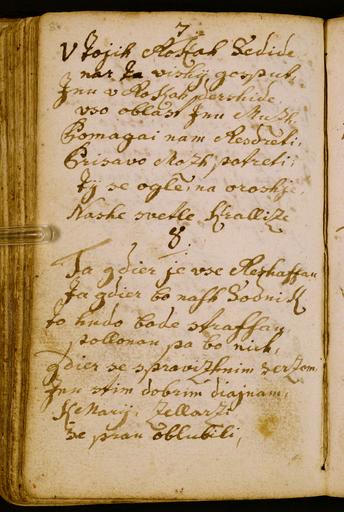 7.
V Tojih Rokah Sedide
nar ta vishij gosput,
Inu v Rokah dershide
vso oblast Inu Muzh,
Pomagai nam Resdreti,
Prisavo Mozh, potreti,
Ty se ogle, na oroshje
Nashe svetle Krallize
8.
Ta gdier je vse
Ta gdier bo nash Sodnik
to hudo bode straffau,
pollonou pa bo nich,
gdier se spravizhnim serzom
Inu stim dobrim diajnam,
K Marij,
Se prau oblubili,